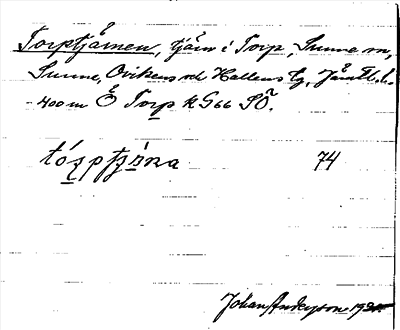 Torptjärnen, tjärn i Torp, Sunne sn,
Sunne, Ovikens och Hallens tg, Jämtl. l.
400 m Ö Torp k G66 SÖ.
tórptjärna 74
Johan Anderson